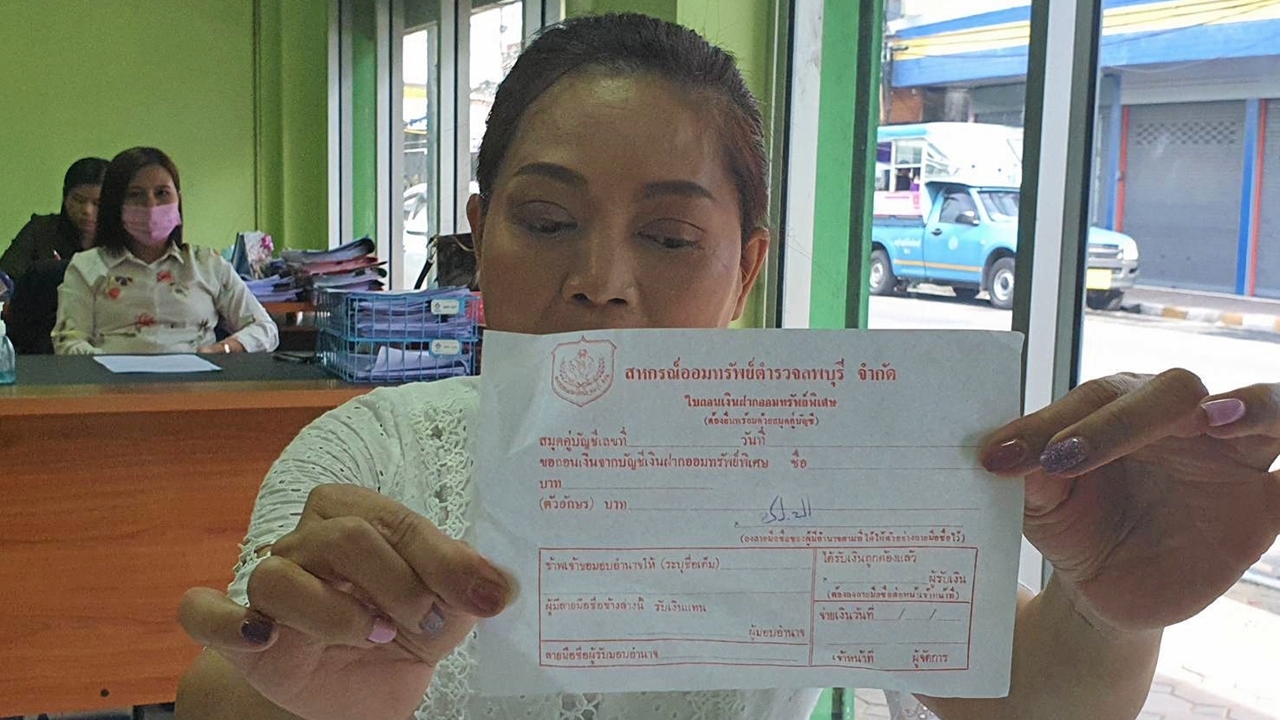 สหกรณ์ออมทรัพย์ตำรวจลพบุรี จำกัด
ใบถอนเงินฝากออมทรัพย์พิเศษ
(ต้องยื่นพร้อมด้วยสมุดคู่บัญชี)
สมุดคู่บัญชีเลขที่ วันที่
ขอถอนเงินจากบัญชีเงินฝากออมทรัพย์พิเศษ ชื่อ
บาท
(ตัวอักษร) บาท
(ลงลายมือชื่อของผู้มีอำนาจตามที่ได้ให้ตัวอย่างลายมือชื่อไว้)
ข้าพเจ้าขอมอบอำนาจให้ (ระบุชื่อเต็ม)
ผู้มีลายมือชื่อข้างล่างนี้ รับเงินแทน
ผู้มอบอำนาจ
ลายมือชื่อผู้รับมอบอำนาจ
ได้รับเงินถูกต้องแล้ว
ผู้รับเงิน
(ต้องลงลายมือชื่อต่อหน้าเจ้าหน้าที่)
จ่ายเงินวันที่ / /
เจ้าหน้าที่ ผู้จัดการ